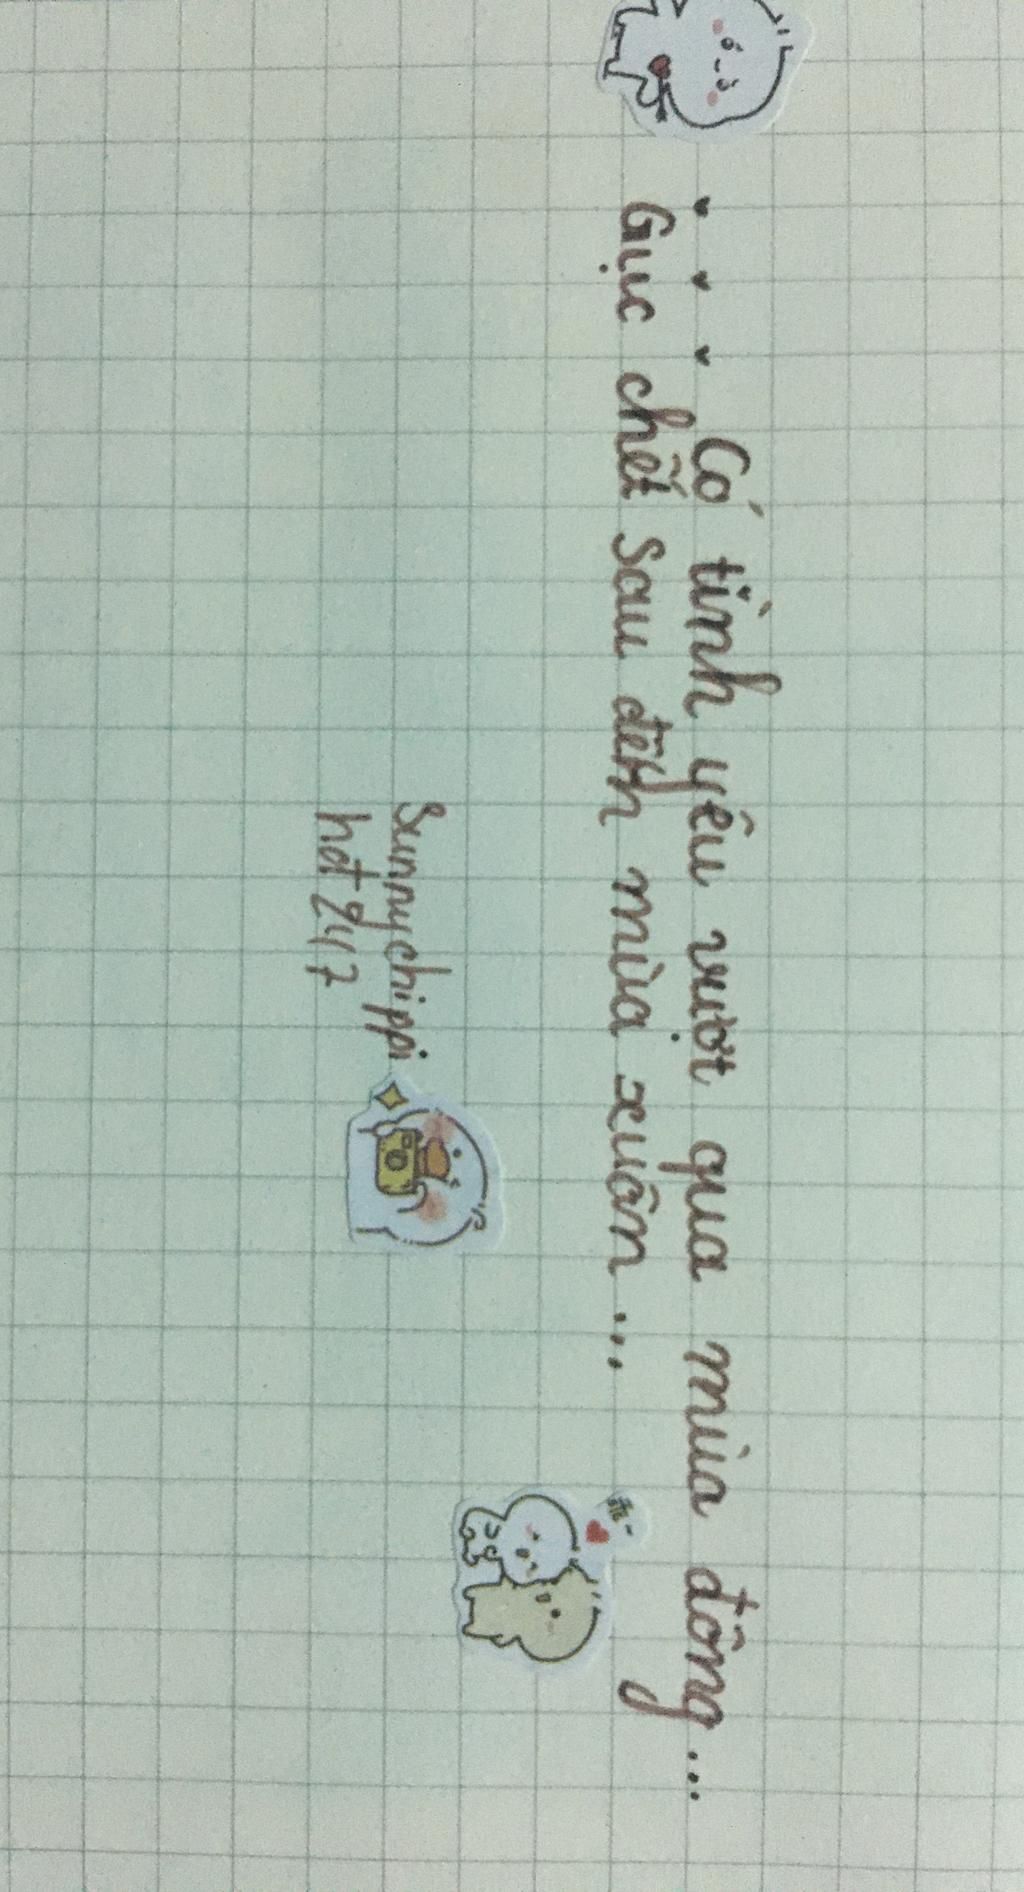 Có tình yêu vượt qua mùa đông...
Gục chết sau đêm mùa xuân...
Sunnychippi
hdt 247